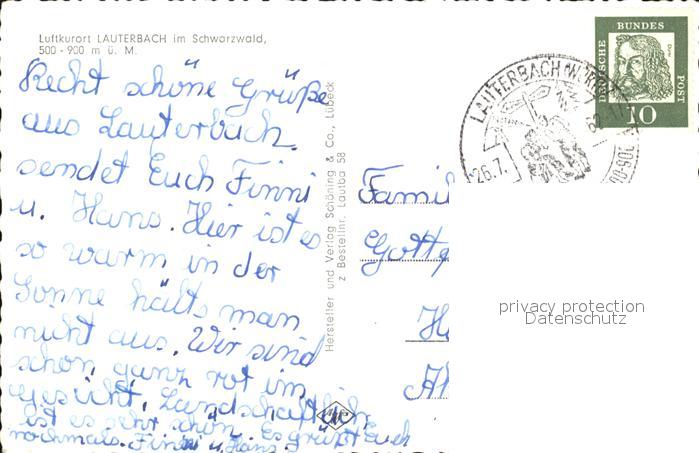 Luftkurort LAUTERBACH im Schwarzwald,
500 - 900 m ü. M.
Recht schöne Grüße
aus Lauterbach.
sendet Euch Finni
u. Hans. Hier ist es
so warm in der
Sonne hälts man
nicht aus. Wir sind
schon ganz rot im
Gesicht. Landschaftlich
ist es sehr schön. Es grüßt Euch
nochmals. Finni u. Hans
Hersteller und Verlag Schöning & Co., Lübeck
z Bestellnr. Lautba 58
LAUTERBACH
26.7.
DEUTSCHE
BUNDES
POST
10
Famil
Gott
H
Al
privacy protection
Datenschutz